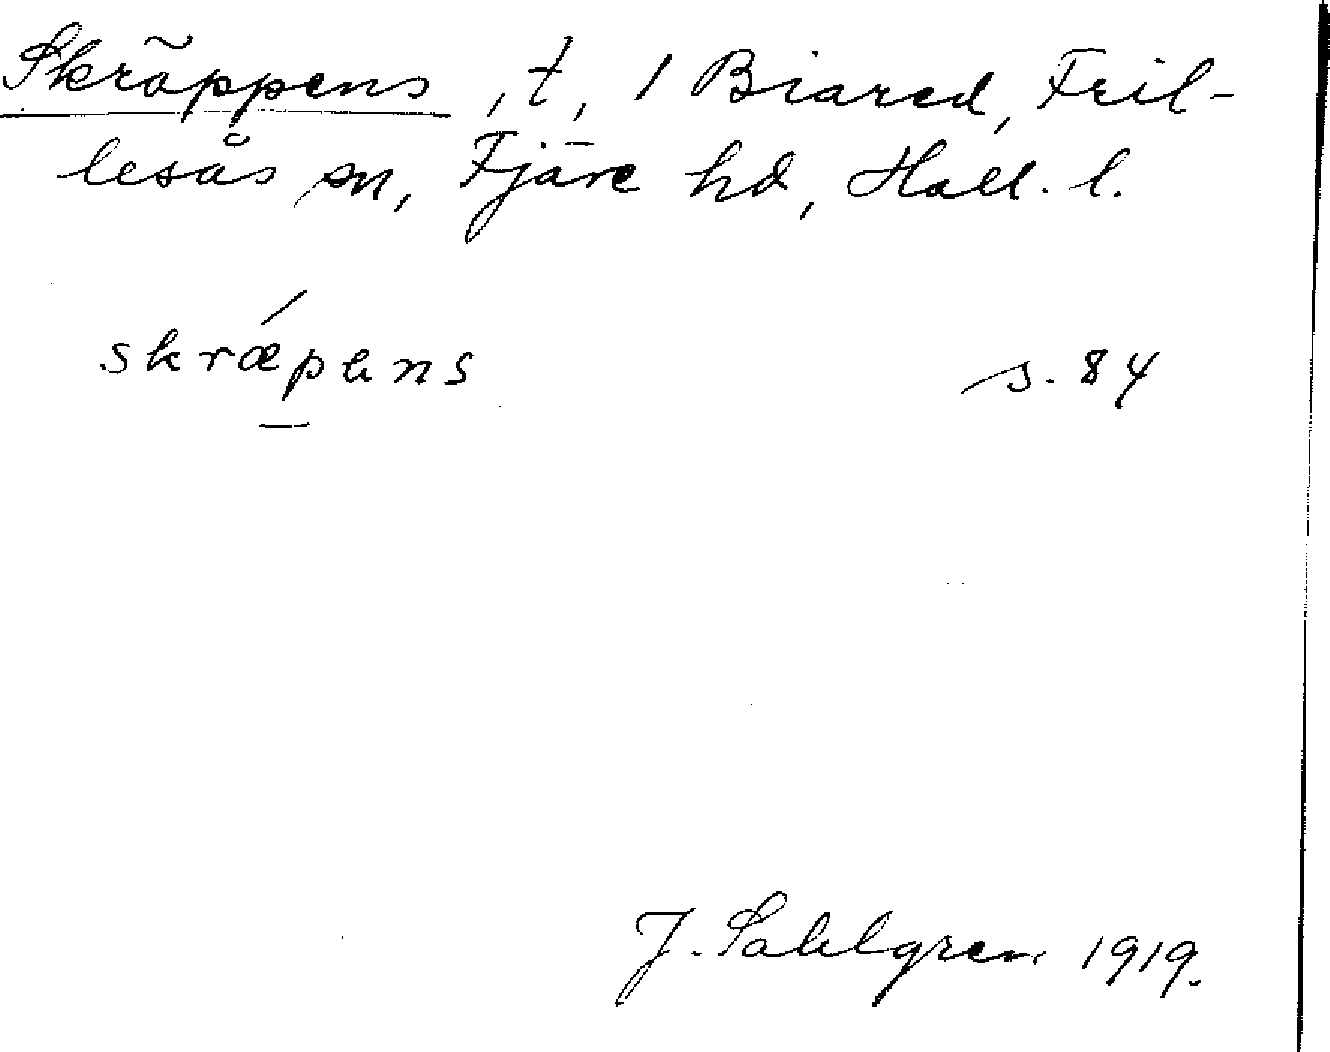 Skräppens, t, 1 Biared, Fril-
lesås sn, Fjäre hd, Hall. l.
skrǽpens s. 84
J. Sahlgren 1919.